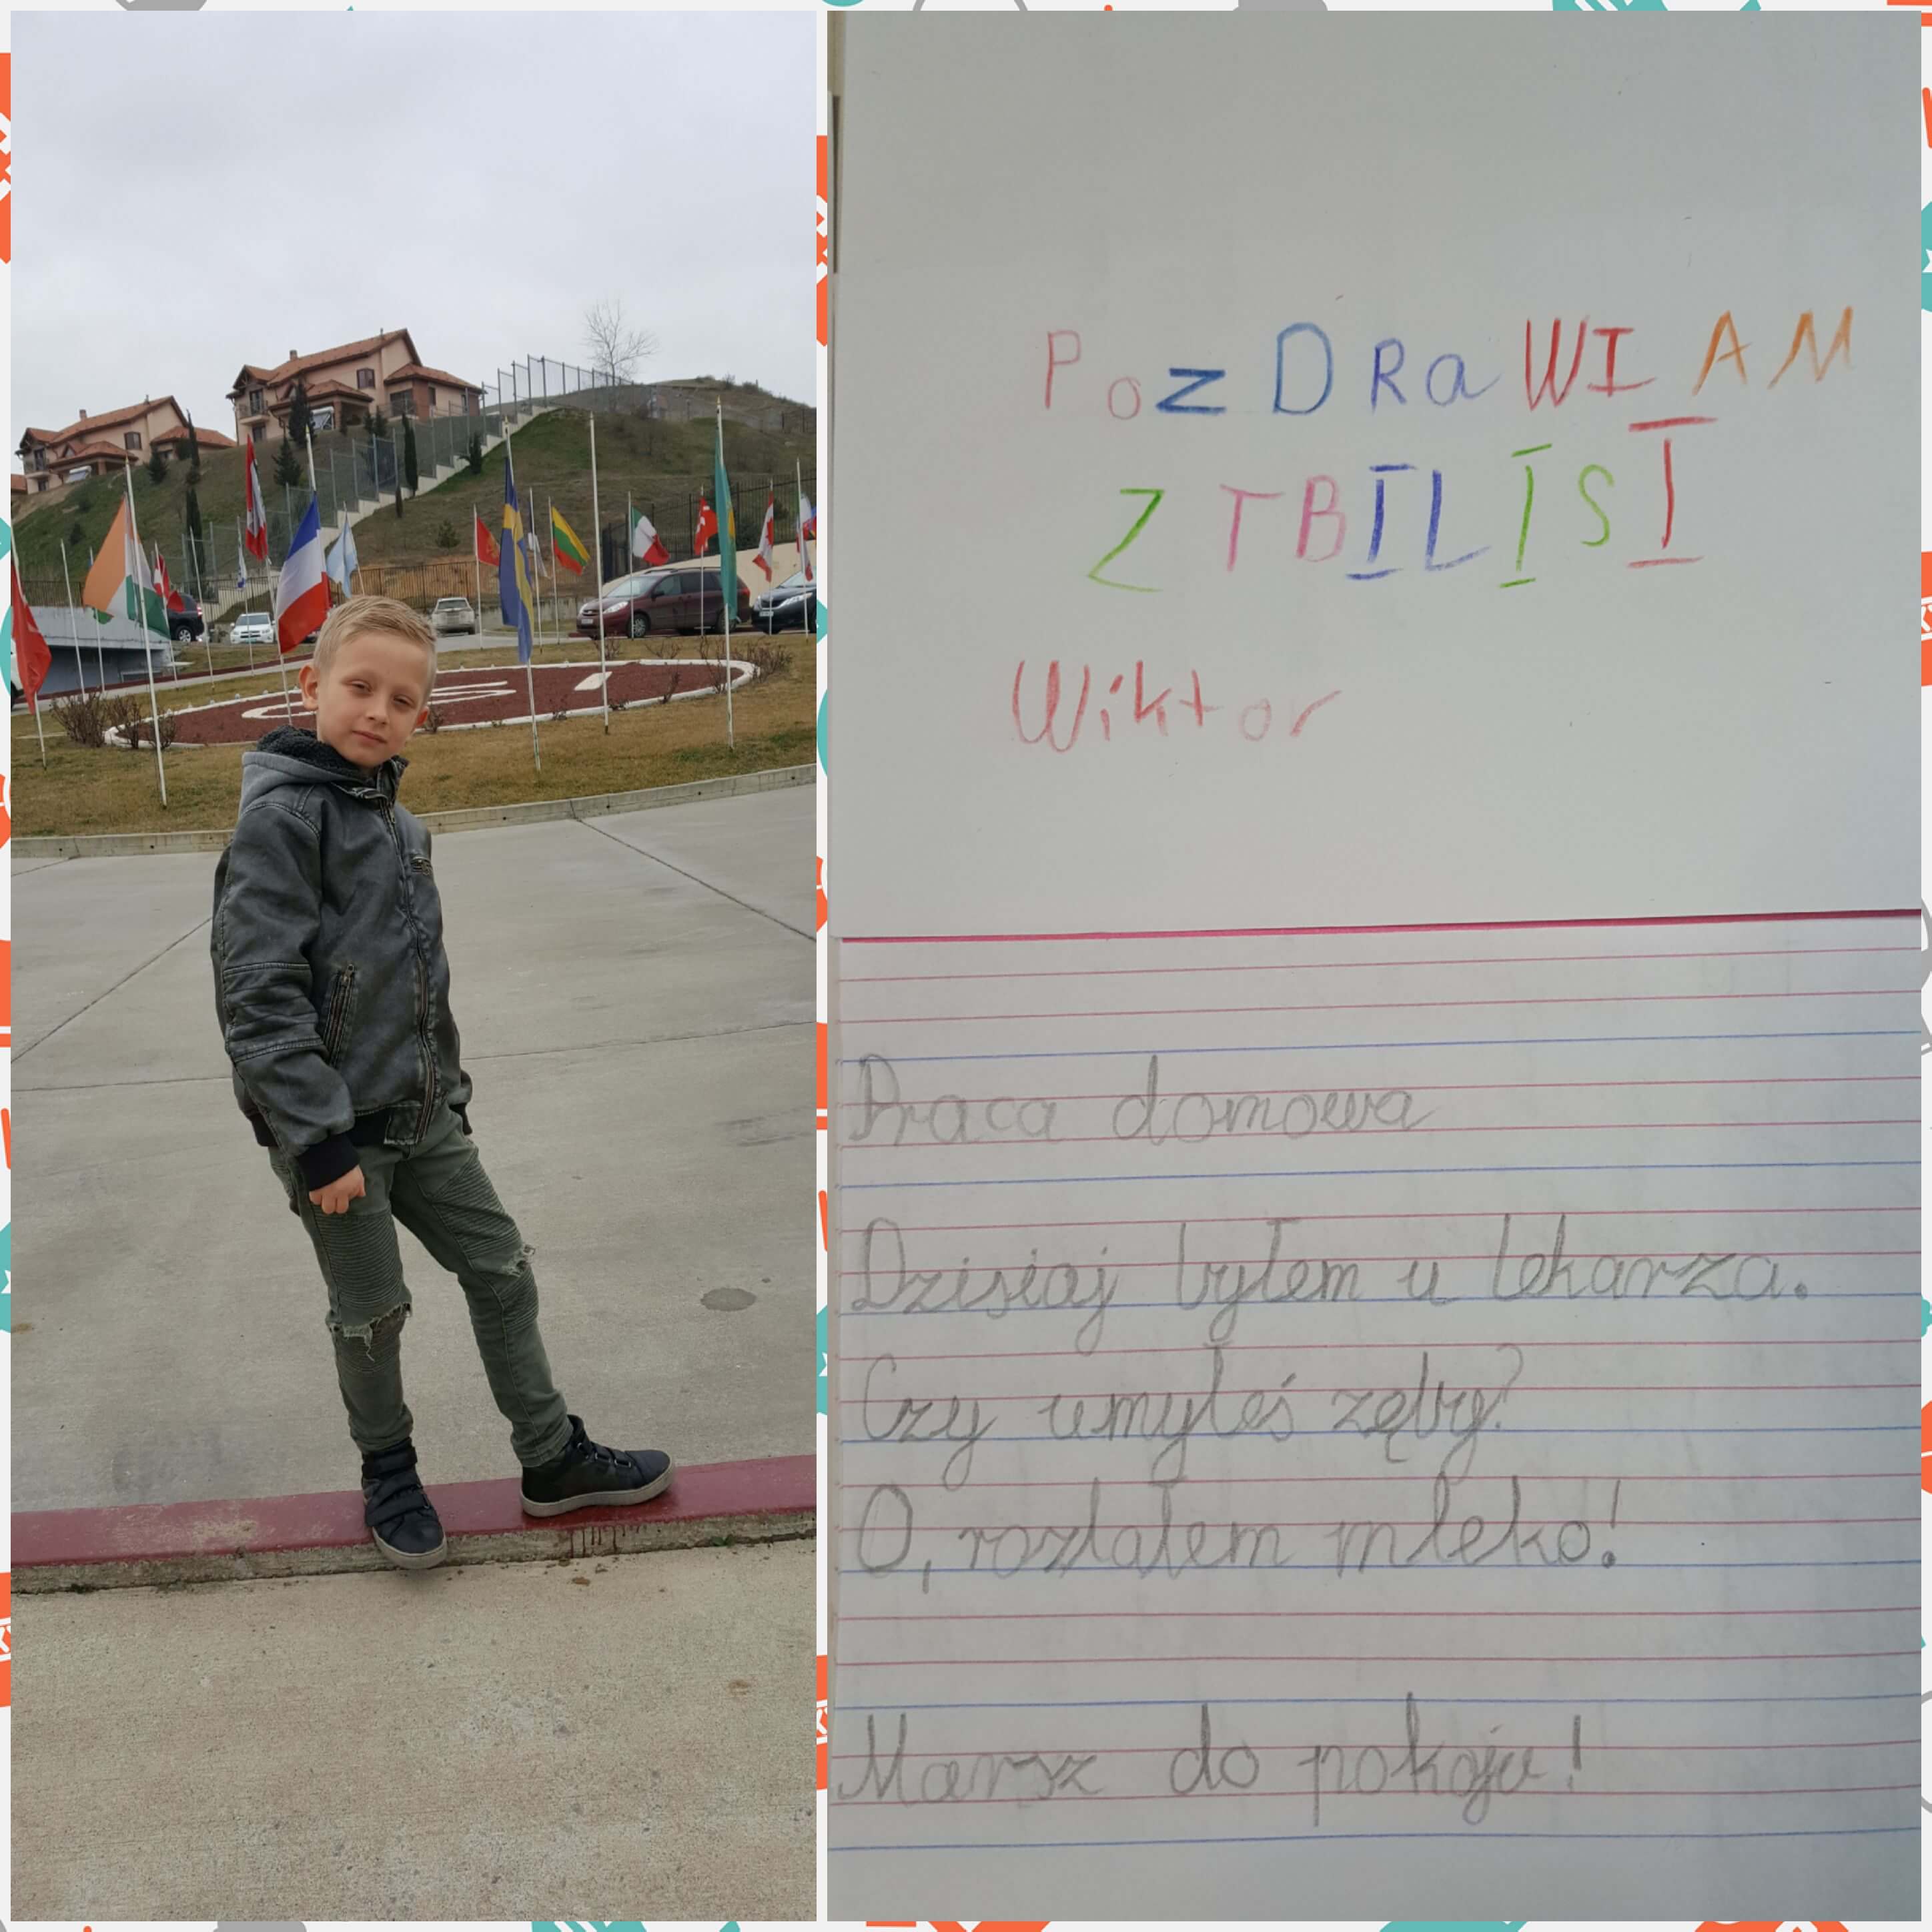 PozDRaWIAM
Z TBILISI
Wiktor
Praca domowa
Dzisiaj byłem u lekarza.
Czy umyłeś zęby?
O, rozlałem mleko!
Marsz do pokoju!